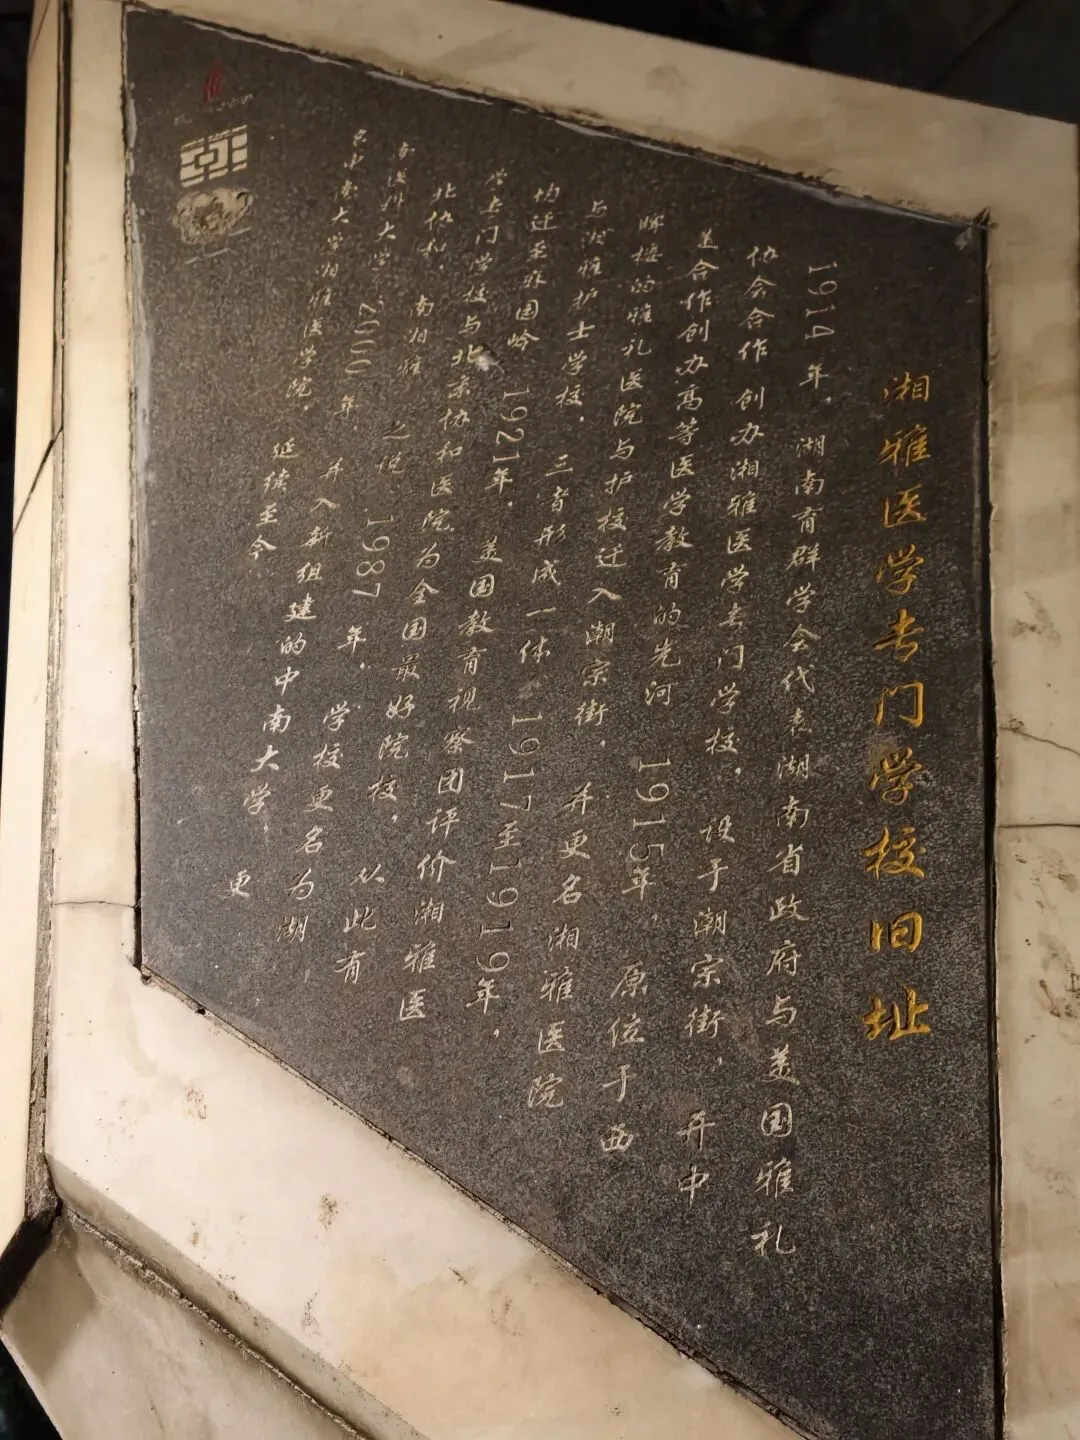 湘雅医学专门学校旧址
1914年，湖南育群学会代表湖南省政府与美国雅礼
协会合作创办湘雅医学专门学校，设于潮宗街，开中
美合作创办高等医学教育的先河 1915年，原位于西
牌楼的雅礼医院与护校迁入潮宗街，并更名湘雅医院
与湘雅护士学校，三者形成一体 1917至1919年，
均迁至麻园岭 1921年，美国教育视察团评价湘雅医
学专门学校与北京协和医院为全国最好院校，从此有
北协和，南湘雅 之说 1987年，学校更名为湖
南医科大学 2000年，并入新组建的中南大学，更
名中南大学湘雅医学院，延续至今